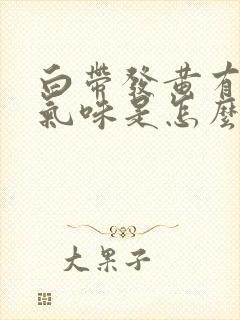 白帶發黃有
氣味是怎麼
大果子